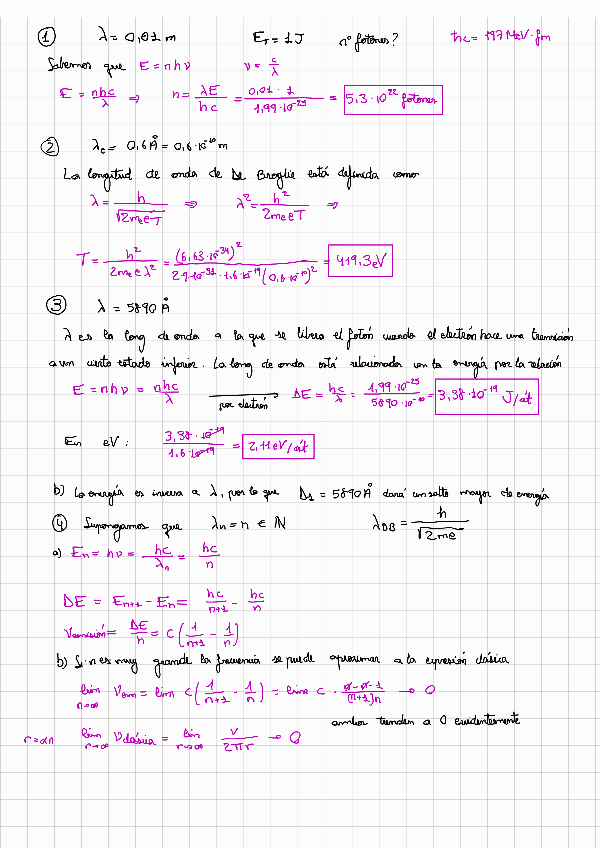 ① λ = 0,01 m E_T = 1 J nº fotones? ħc = 197 MeV·fm
Sabemos que E = nhν ν = c/λ
E = nhc/λ ⇒ n = λE/hc = 0,01 · 1/1,99·10^-25 = 5,3·10^22 fotones
② λ_c = 0,6 Å = 0,6·10^-10 m
La longitud de onda de De Broglie está definida como
λ = h/√(2m_e e T) ⇒ λ² = h²/(2m_e e T) ⇒
T = h²/(2m_e e λ²) = (6,63·10^-34)²/(2·9·10^-31 · 1,6·10^-19 (0,6·10^-10)²) = 419,3 eV
③ λ = 5890 Å
λ es la long de onda a la que se libera el fotón cuando el electrón hace una transición
a un cierto estado inferior. La long de onda está relacionada con la energía por la relación
E = nhν = nhc/λ → por electrón ΔE = hc/λ = 1,99·10^-25/5890·10^-10 = 3,38·10^-19 J/át
En eV: 3,38·10^-19/1,6·10^-19 = 2,11 eV/át
b) La energía es inversa a λ, por lo que Δ_1 = 5890 Å dará un salto mayor de energía
④ Supongamos que λ_n = n ∈ ℕ λ_DB = h/√(2me)
a) E_n = hν = hc/λ_n = hc/n
ΔE = E_n+1 - E_n = hc/(n+1) - hc/n
ν_emisión = ΔE/h = c(1/(n+1) - 1/n)
b) Si n es muy grande la frecuencia se puede aproximar a la expresión clásica
lim n→∞ ν_em = lim c(1/(n+1) - 1/n) = lim c · (n-n-1)/((n+1)n) → 0
ambos tienden a 0 evidentemente
r = αn lim r→∞ ν_clásica = lim r→∞ v/2πr → 0